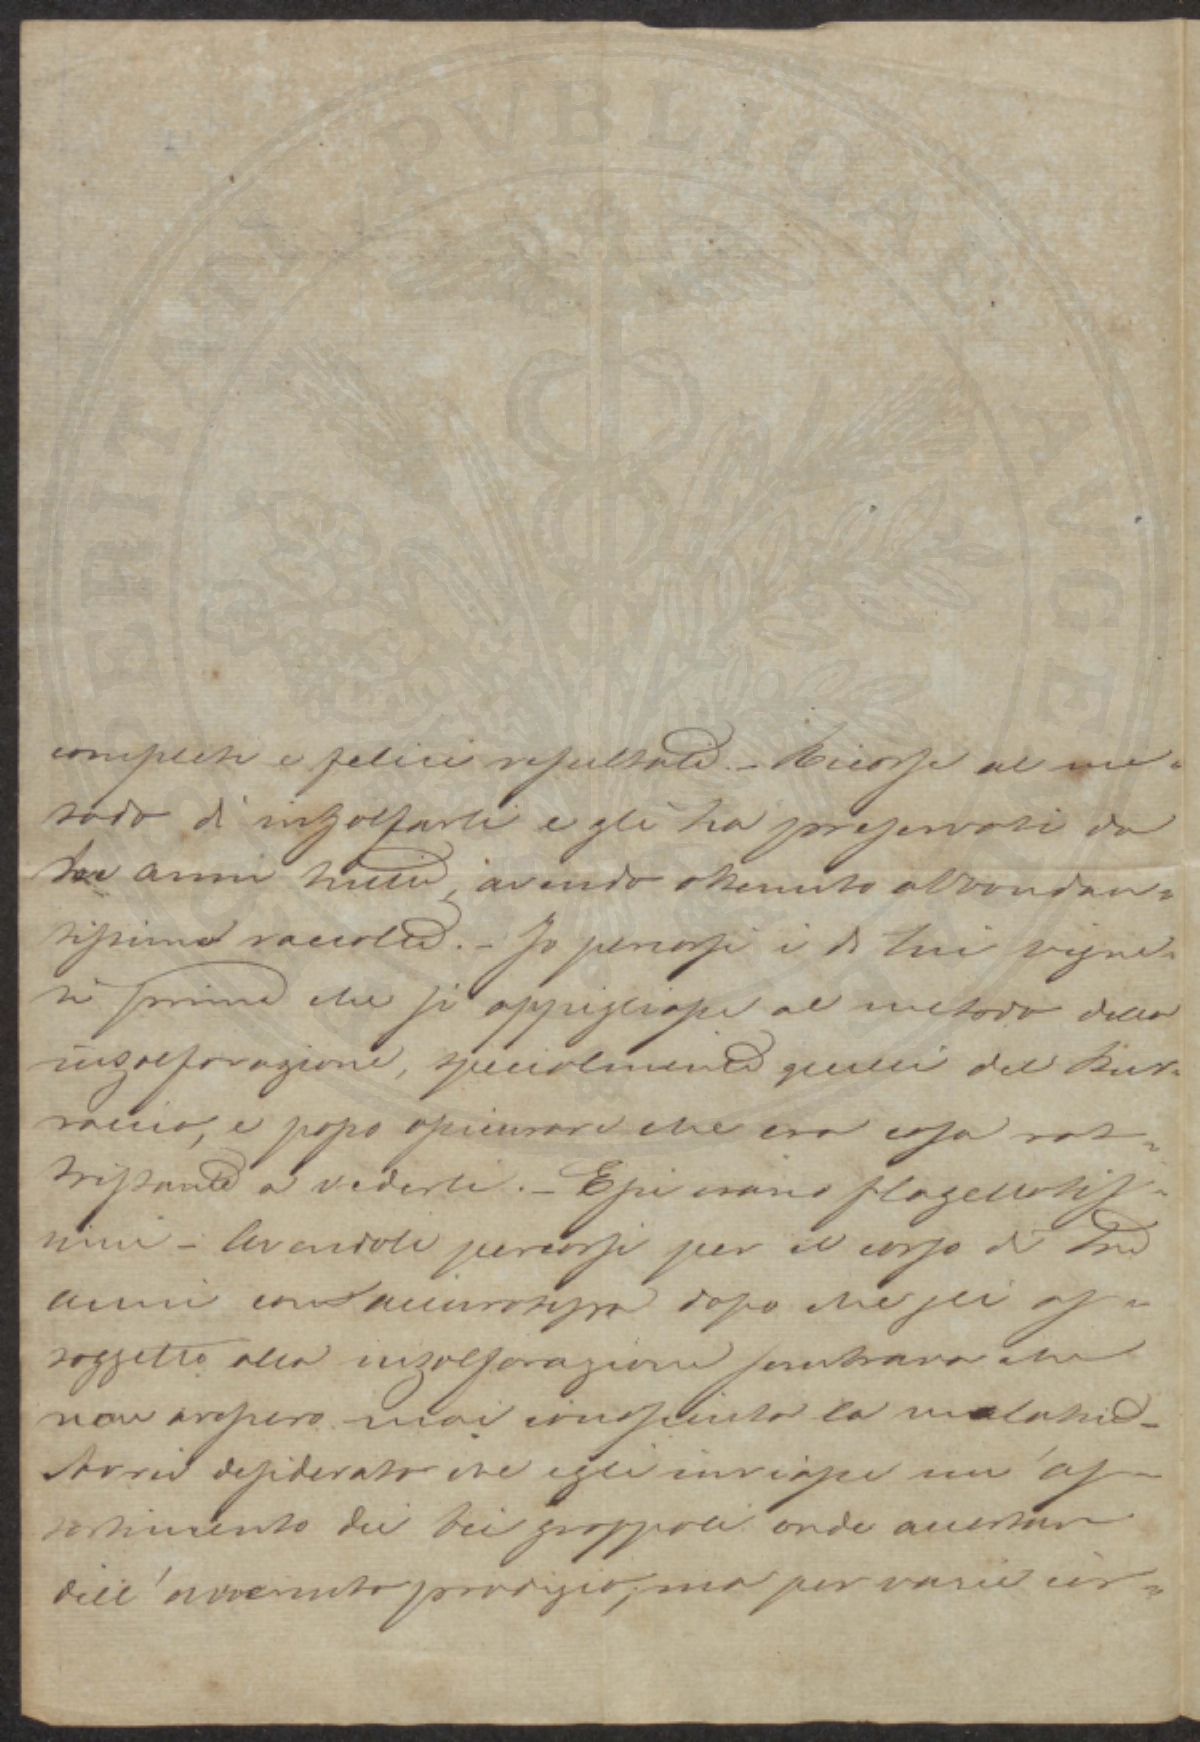 completi e felici resultati. - Ricorse al me-
todo di inzolfarli e gli ha preservati da
tre anni tutti, avendo ottenuto abbondan-
tissima raccolta. - Io percorsi i di lui vigne-
ti prima che si appigliasse al metodo della
inzolforazione, specialmente quelli del Bur-
raccio, e posso assicurare che era cosa rat-
tristante a vederli. - Essi erano flagellatis-
simi - Avendoli percorsi per il corso di tre
anni con accuratezza dopo che gli as-
soggettò alla inzolforazione sembrava che
non avessero mai conosciuta la malattia -
Avrei desiderato che egli inviasse un' as-
sortimento dei bei grappoli onde accertare
dell' avvenuto prodigio, ma per varie cir-